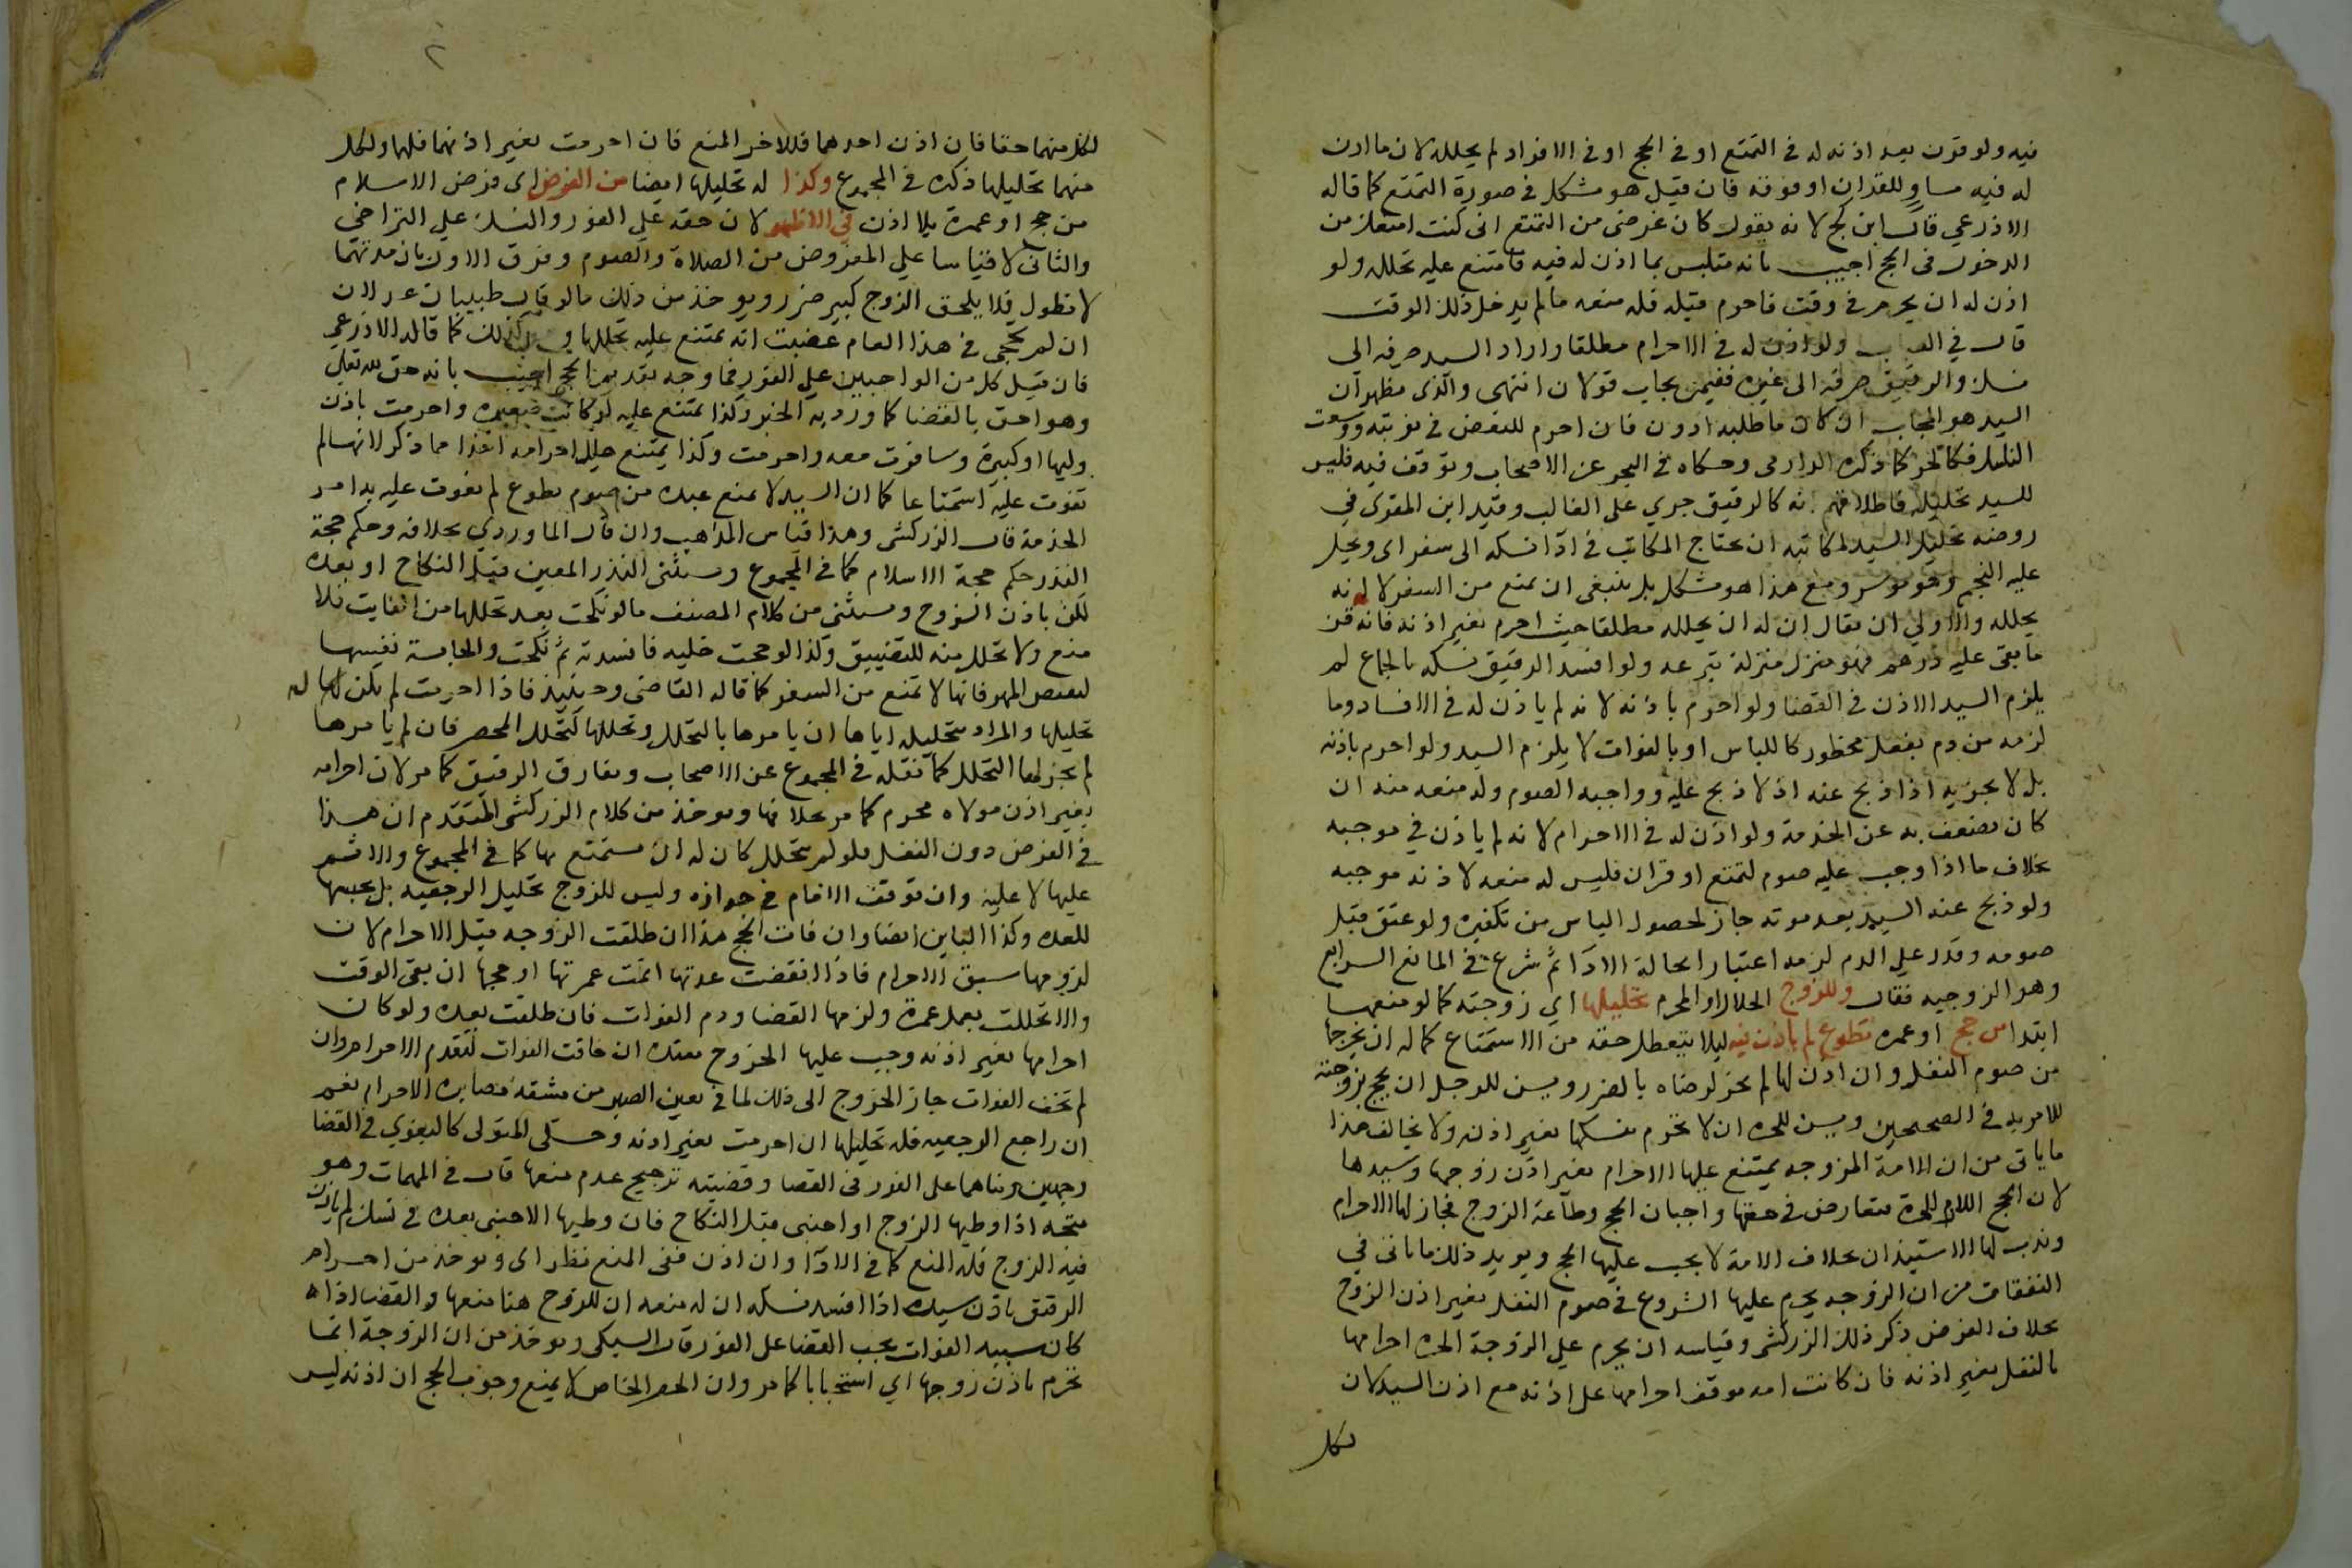 فيه ولو قرن بعد اذنه له في التمتع او في الحج او في الافراد لم يحلله لان ما اذن
له فيه مساو للقران او فوقه فان قيل هو مشكل في صورة التمتع كما قاله
الاذرعي قال ابن كج لانه يقول كان غرضي من التمتع اني كنت امنعك من
الدخول في الحج اجيب بانه متلبس بما اذن له فيه فامتنع عليه تحلله ولو
اذن له ان يحرم في وقت فاحرم قبله فله منعه ما لم يدخل ذلك الوقت
قال في العباب ولو اذن له في الاحرام مطلقا واراد السيد صرفه الى
نسك والرقيق صرفه الى غيره ففيمن يجاب قولان انتهى والذي يظهر ان
السيد هو المجاب ان كان ما طلبه ادون فان احرم المبعض في نوبته ووسعت
النسك فكالحر كما ذكره الدارمي وحكاه في البحر عن الاصحاب وتوقف فيه فليس
للسيد تحليله فاطلاقهم انه كالرقيق جري على الغالب وقيد ابن المقري في
روضه تحليل السيد لمكاتبه ان يحتاج المكاتب في ادا نسكه الى سفر اي ويحل
عليه النجم وهو موسر ومع هذا هو مشكل بل ينبغي ان يمنع من السفر لا انه
يحلله والاولي ان يقال ان له ان يحلله مطلقا حيث احرم بغير اذنه فانه قن
ما بقي عليه درهم فهو منزل منزلة تبرعه ولو افسد الرقيق نسكه بالجماع لم
يلزم السيد الاذن في القضا ولو احرم باذنه لانه لم ياذن له في الافساد وما
لزمه من دم بفعل محظور كاللباس او بالفوات لا يلزم السيد ولو احرم باذنه
بل لا يجزيه اذا ذبح عنه اذ لا ذبح عليه وواجبه الصوم وله منعه منه ان
كان يضعف به عن الخدمة ولو اذن له في الاحرام لانه لم ياذن في موجبه
بخلاف ما اذا وجب عليه صوم لتمتع او قران فليس له منعه لاذنه موجبه
ولو ذبح عنه السيد بعد موته جاز لحصول الياس من تكفيره ولو عتق قبل
صومه وقدر على الدم لزمه اعتبارا بحالة الادا ثم شرع في المانع الرابع
وهو الزوجيه فقال وللزوج الحلال او المحرم تحليلها اي زوجته كما له منعها
ابتدا من حج او عمره تطوع لم ياذن فيه ليلا يتعطل حقه من الاستمتاع كما له ان يخرجها
من صوم النفل وان اذن لها لم يجز لرضاه بالضرر ويسن للرجل ان يحج بزوجته
للامر به في الصحيحين ويسن للحره ان لا تحرم بنسكها بغير اذنه ولا يخالف هذا
ما ياتي من ان الامة المزوجه يمتنع عليها الاحرام بغير اذن زوجها وسيدها
لان الحج اللازم للحرة متعارض في حقها واجبان الحج وطاعة الزوج فجاز لها الاحرام
وندب لها الاستيذان بخلاف الامة لا يجب عليها الحج ويويد ذلك ما ياتي في
النفقات من ان الزوجه يحرم عليها الشروع في صوم النفل بغير اذن الزوج
بخلاف الفرض ذكر ذلك الزركشي وقياسه ان يحرم على الزوجة الحره احرامها
بالنفل بغير اذنه فان كانت امه موقف احرامها على اذنه مع اذن السيد لان
لكل
٢
لكل منهما حقا فان اذن احدهما فللاخر المنع فان احرمت بغير اذنهما فلهما ولكل
منهما تحليلها ذكره في المجموع وكذا له تحليلها ايضا من الفرض اي فرض الاسلام
من حج او عمرة بلا اذن في الاظهر لان حقه على الفور والنسك على التراخي
والثاني لا قياسا على المفروض من الصلاة والصوم وفرق الاول بان مدتهما
لا تطول فلا يلحق الزوج كبير ضرر ويوخذ من ذلك ما لو قال طبيبان عدلان
ان لم تحجي في هذا العام عضبت انه يمتنع عليه تحللها وهو كذلك كما قاله الاذرعي
فان قيل كل من الواجبين على الفور فما وجه تقديم الحج اجيب بانه حق لله تعالى
وهو احق بالقضا كما ورد به الخبر وكذا يمتنع عليه لو كانت صغيره واحرمت باذن
وليها او كبيرة وسافرت معه واحرمت وكذا يمتنع حلل احرامه اخذا مما ذكر لانها لم
تفوت عليه استمتاعا كما ان السيد لا يمنع عبده من صوم تطوع لم يفوت عليه به امر
الخدمة قال الزركشي وهذا قياس المذاهب وان قال الماوردي بخلافه وحكم حجة
النذر حكم حجة الاسلام كما في المجموع ويستثنى النذر المعين قبل النكاح او بعده
لكن باذن الزوج ويستثنى من كلام المصنف ما لو نكحت بعد تحللها من الفايت فلا
منع ولا تحلل منه للتضييق وكذا لو حجت خليه فافسدته ثم نكحت والحابسة نفسها
لبعض المهر فانها لا تمنع من السفر كما قاله القاضي وحينيذ فاذا احرمت لم يكن له
تحليلها والمراد بتحليله اياها ان يامرها بالتحلل وتحللها كتحلل المحصر فان لم يامرها
لم يجز لها التحلل كما نقله في المجموع عن الاصحاب وتفارق الرقيق كما مر لان احرامه
بغير اذن مولاه محرم كما مر بخلافها ويوخذ من كلام الزركشي المتقدم ان هذا
في الفرض دون النفل فلو لم تتحلل كان له ان يستمتع بها كما في المجموع والاثم
عليها لا عليه وان توقف الامام في جوازه وليس للزوج تحليل الرجعيه بل حبسها
للعده وكذا الباين ايضا وان فات الحج هذا ان طلقت الزوجه قبل الاحرام لان
لزومها سبق الاحرام فاذا انقضت عدتها اتمت عمرتها او حجها ان بقي الوقت
والا تحللت بعمل عمرة ولزمها القضا ودم الفوات فان طلقت بعده ولو كان
احرامها بغير اذنه وجب عليها الخروج معتده ان خافت الفوات لتقدم الاحرام وان
لم تخف الفوات جاز الخروج الى ذلك لما في تعين الصبر من مشقة مصابره الاحرام نعم
ان راجع الرجعيه فله تحليلها ان احرمت بغير اذنه وحكى المتولي كالبغوي في القضا
وجهين بناهما على الفور في القضا وقضيته ترجيح عدم منعها قال في المهمات وهو
متجه اذا وطيها الزوج او اجنبي قبل النكاح فان وطيها الاجنبي بعده في نسك لم ياذن
فيه الزوج فله المنع كما في الادا وان اذن ففي المنع نظر اي ويوخذ من احرام
الرقيق باذن سيده اذا افسد نسكه ان له منعه ان للزوج هنا منعها والقضا اذا
كان سببه الفوات يجب القضا على الفور قال السبكي ويوخذ من ان الزوجة انما
تحرم باذن زوجها اي استحبابا كما مر وان الحصر الخاص لا يمنع وجوب الحج ان اذنه ليس